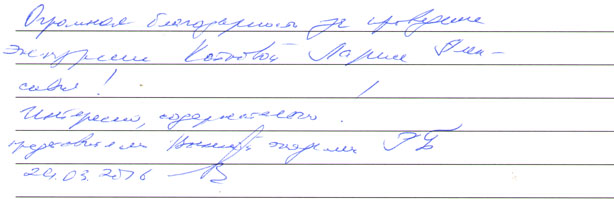 Огромная благодарность за проведение
экскурсии Котковой Ларисе Алек-
сеевне!
Интересно, содержательно.
представители академии РБ
24.03.2016